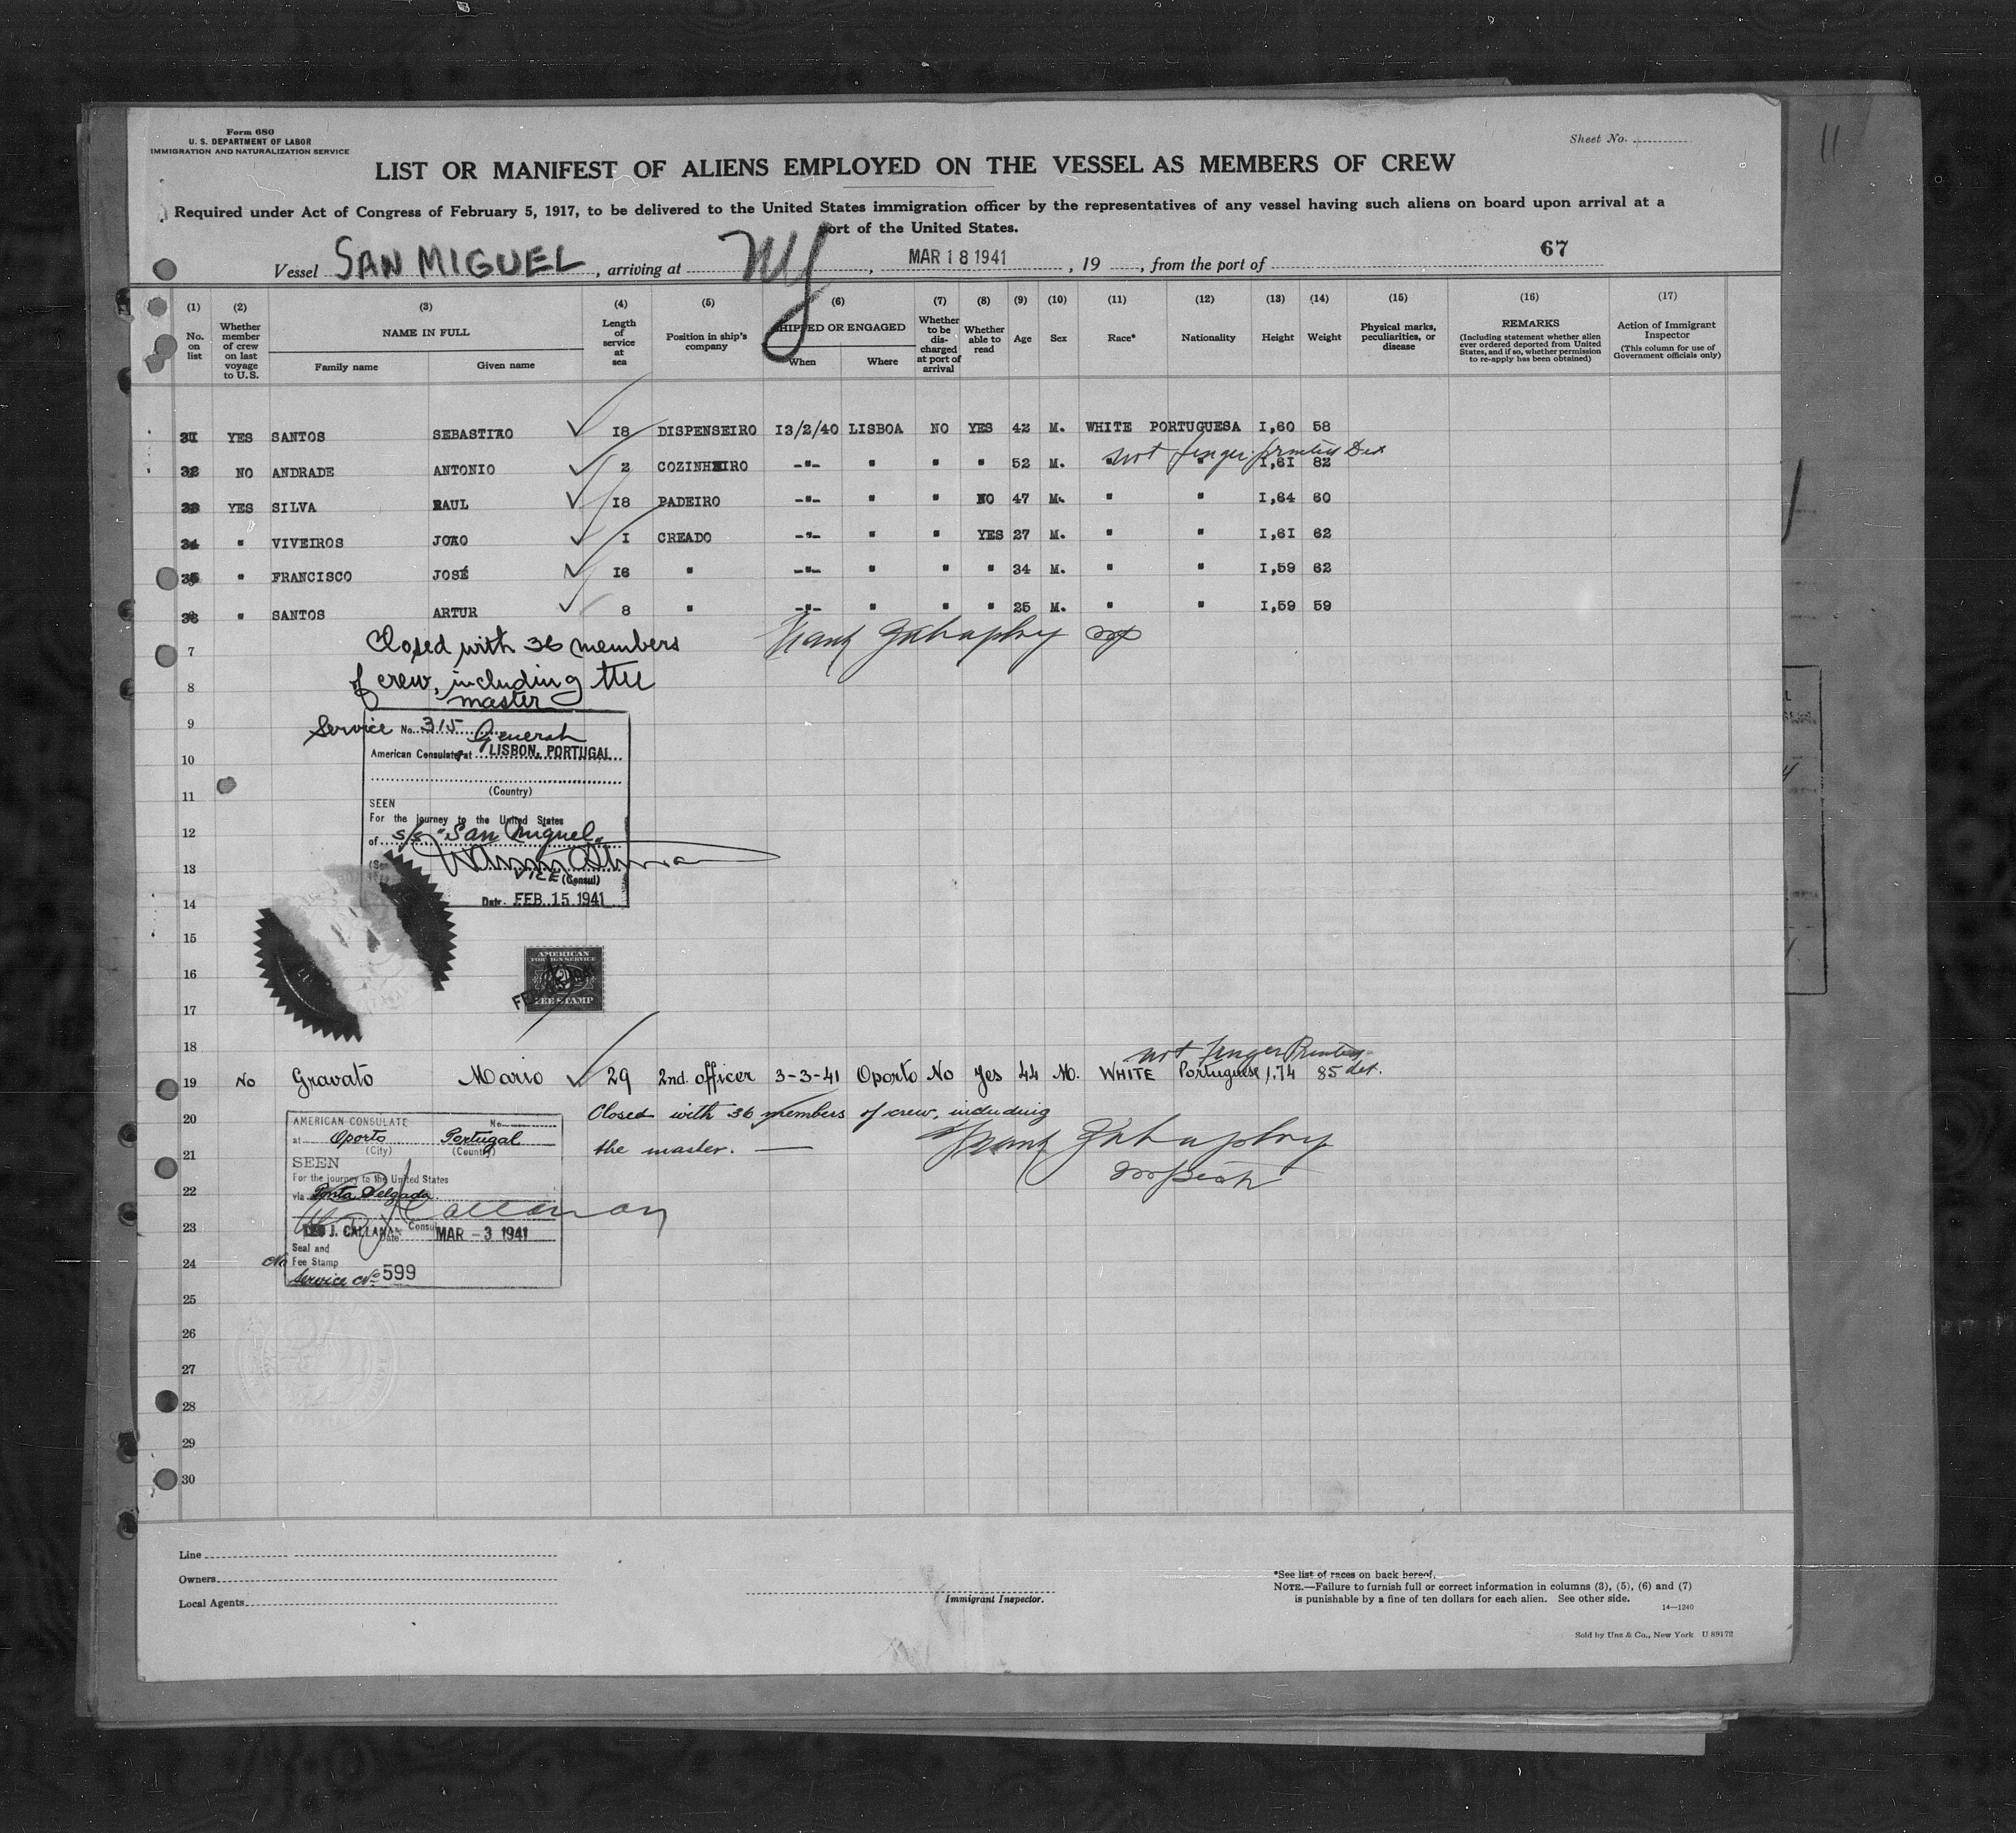 Form 680
U. S. DEPARTMENT OF LABOR
IMMIGRATION AND NATURALIZATION SERVICE
Sheet No.
11
LIST OR MANIFEST OF ALIENS EMPLOYED ON THE VESSEL AS MEMBERS OF CREW
Required under Act of Congress of February 5, 1917, to be delivered to the United States immigration officer by the representatives of any vessel having such aliens on board upon arrival at a
port of the United States.
67
Vessel SAN MIGUEL, arriving at NY, MAR 18 1941, 19, from the port of
(1) (2) (3) (4) (5) (6) (7) (8) (9) (10) (11) (12) (13) (14) (15) (16) (17)
No. on list
Whether member of crew on last voyage to U.S.
NAME IN FULL
Family name
Given name
Length of service at sea
Position in ship's company
SHIPPED OR ENGAGED
When
Where
Whether to be discharged at port of arrival
Whether able to read
Age
Sex
Race*
Nationality
Height
Weight
Physical marks, peculiarities, or disease
REMARKS
(Including statement whether alien ever ordered deported from United States, and if so, whether permission to re-apply has been obtained)
Action of Immigrant Inspector
(This column for use of Government officials only)
31 YES SANTOS SEBASTIAO 18 DISPENSEIRO 13/2/40 LISBOA NO YES 42 M. WHITE PORTUGUESA 1,60 58
not finger printed Det
32 NO ANDRADE ANTONIO 2 COZINHEIRO -"- " " " 52 M. " " 1,61 82
33 YES SILVA RAUL 18 PADEIRO -"- " " NO 47 M. " " 1,64 60
34 " VIVEIROS JOAO 1 CREADO -"- " " YES 27 M. " " 1,61 62
35 " FRANCISCO JOSÉ 16 " -"- " " " 34 M. " " 1,59 62
36 " SANTOS ARTUR 8 " -"- " " " 25 M. " " 1,59 59
7 Closed with 36 members
8 of crew, including the
master
9 Service No. 315 General
10 American Consulate at LISBON, PORTUGAL
11 (Country)
SEEN
For the journey to the United States
12 of s/s "San Miguel"
13 VICE (Consul)
14 Date FEB 15 1941
15
AMERICAN
FOREIGN SERVICE
16
FEE STAMP
17
18
not Finger Printed
19 No Gravato Mario 29 2nd. officer 3-3-41 Oporto No Yes 44 M. WHITE Portuguese 1.74 85 det.
20 Closed with 36 members of crew, including
21 the master.
AMERICAN CONSULATE No.
at Oporto Portugal
(City) (Country)
SEEN
For the journey to the United States
22 via Ponta Delgada
23 LEO J. CALLAHAN Consul
Date MAR -3 1941
Seal and
24 No Fee Stamp
Service No. 599
25
26
27
28
29
30
Line
Owners
Local Agents
Immigrant Inspector.
*See list of races on back hereof.
NOTE.—Failure to furnish full or correct information in columns (3), (5), (6) and (7)
is punishable by a fine of ten dollars for each alien. See other side.
14—1240
Sold by Unz & Co., New York U 89172